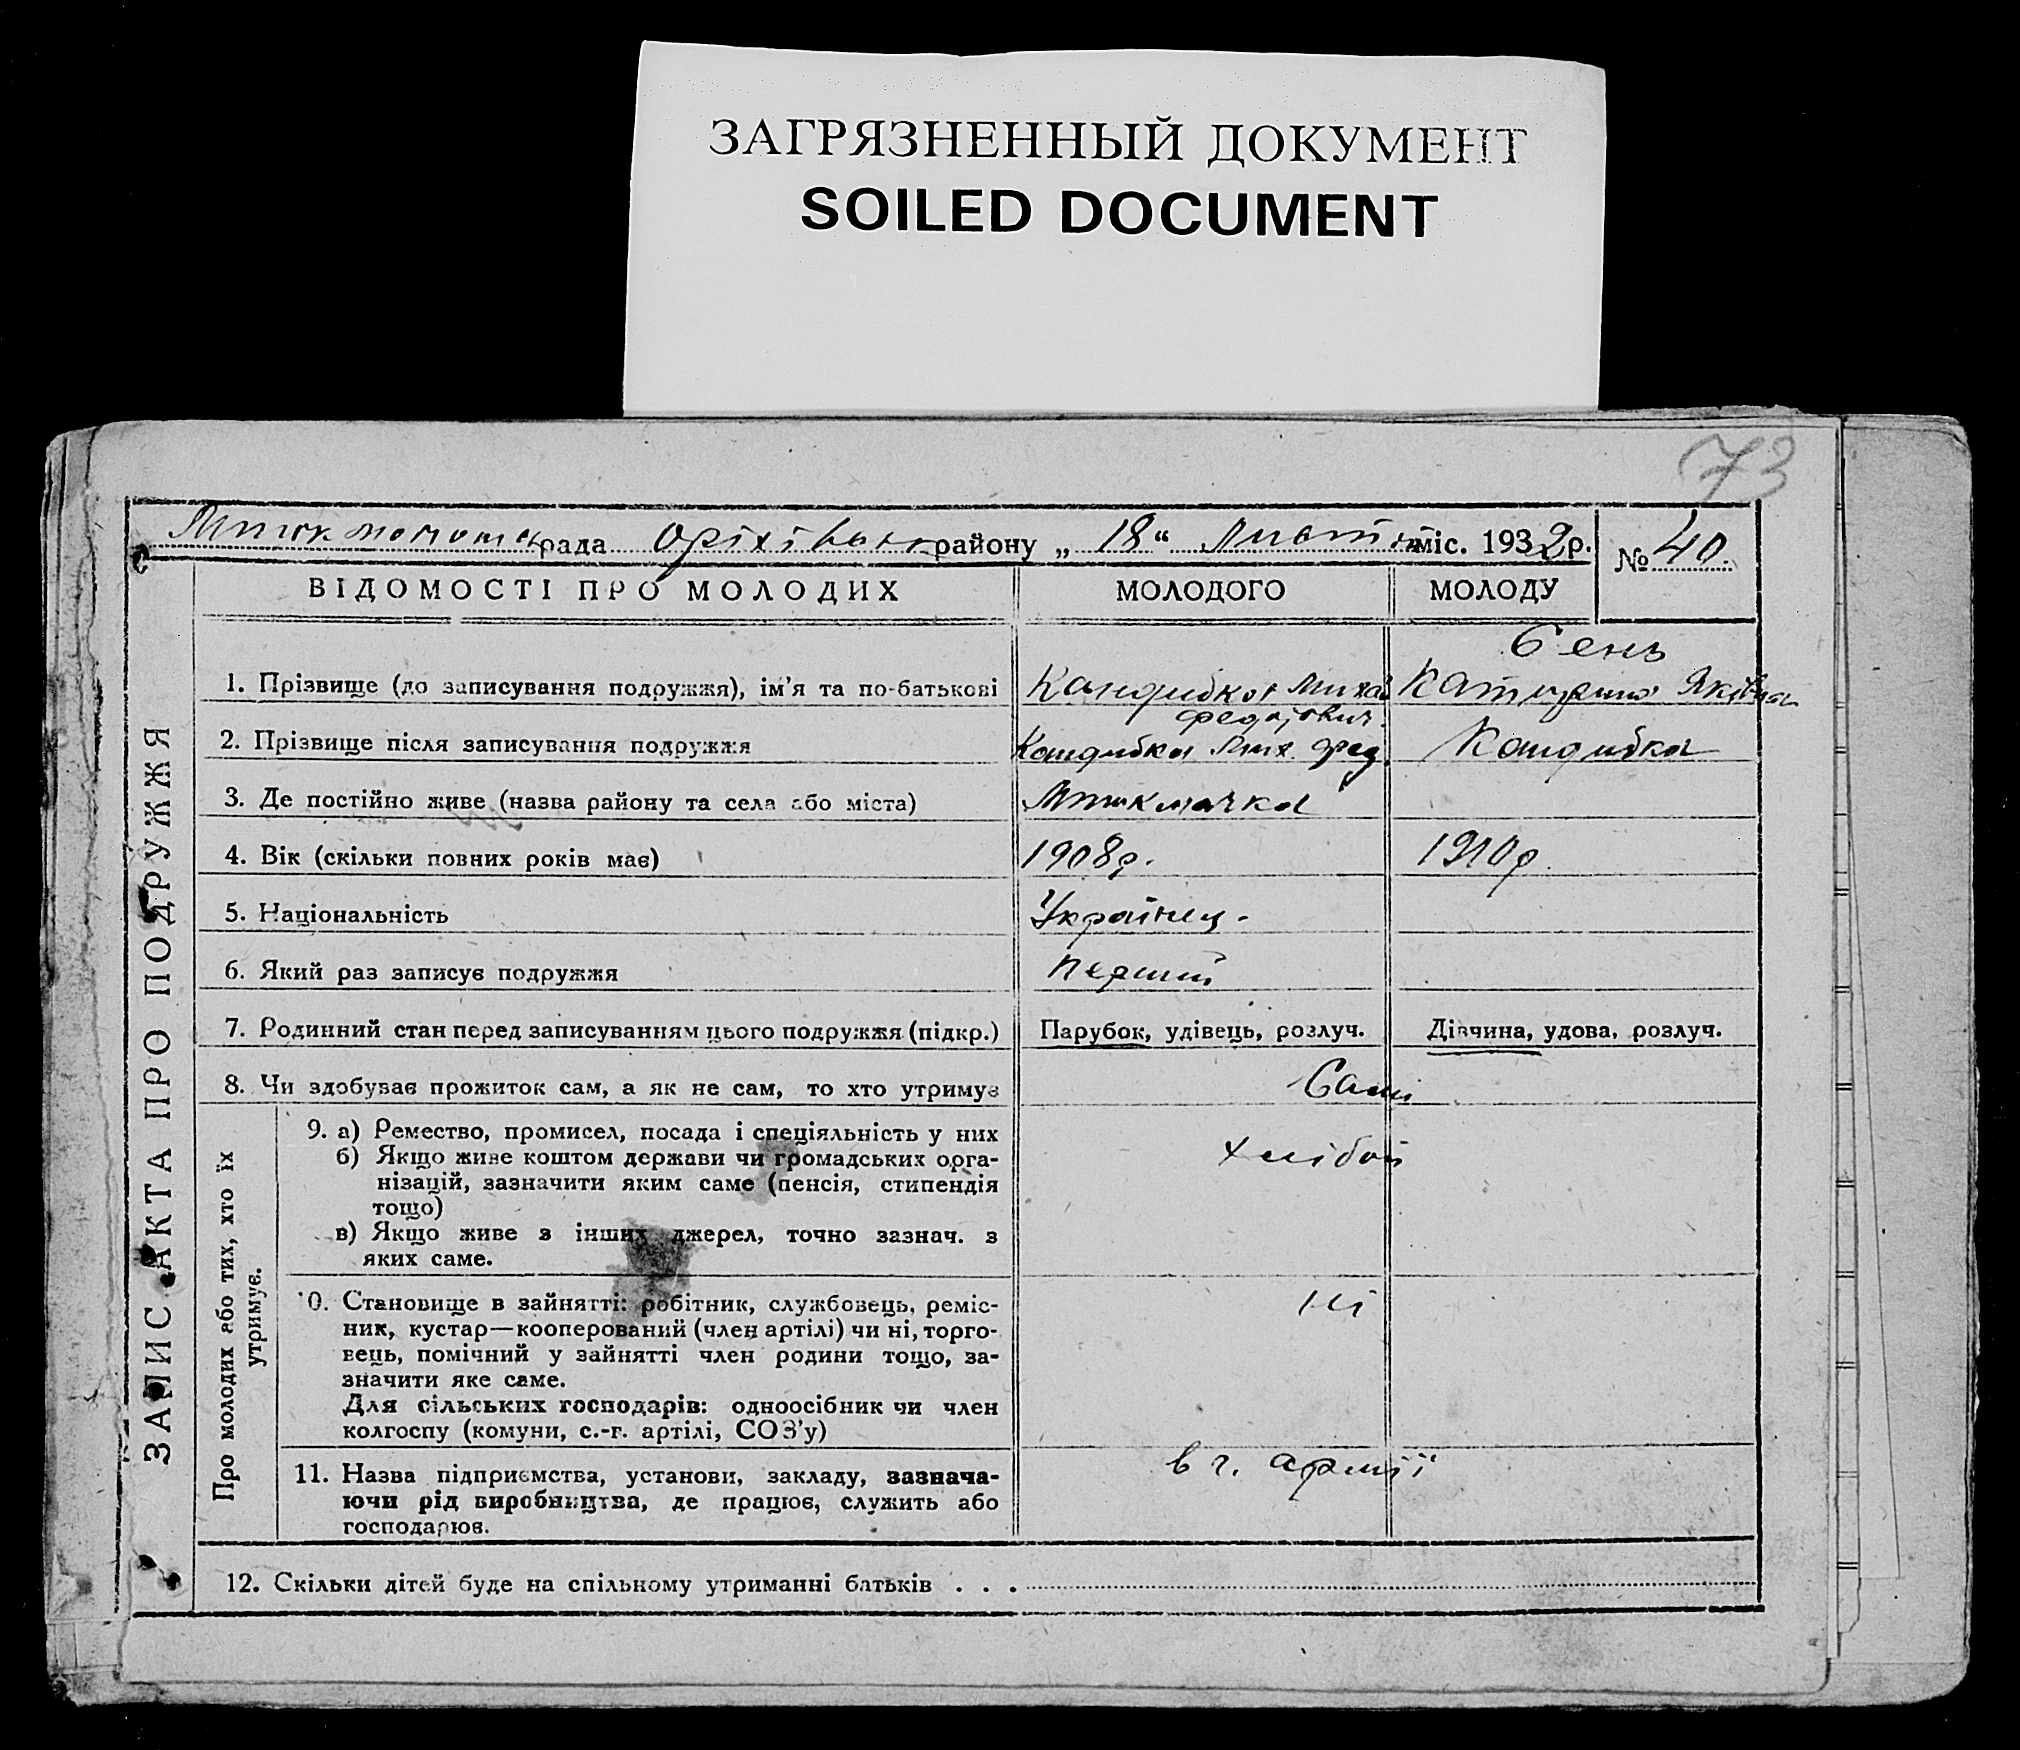 ЗАГРЯЗНЕННЫЙ ДОКУМЕНТ
SOILED DOCUMENT
73
рада Оріхівськ району „ 18 “ міс. 1932 р. № 40
ВІДОМОСТІ ПРО МОЛОДИХ МОЛОДОГО МОЛОДУ
ЗАПИС АКТА ПРО ПОДРУЖЖЯ
Бень
1. Прізвище (до записування подружжя), ім'я та по-батькові Кандибка Миха Катерина Яківна
Федорович
2. Прізвище після записування подружжя Кандибка Мих. Фед. Кандибка
3. Де постійно живе (назва району та села або міста)
4. Вік (скільки повних років має) 1908р. 1910р.
5. Національність Українец.
6. Який раз записує подружжя перший
7. Родинний стан перед записуванням цього подружжя (підкр.) Парубок, удівець, розлуч. Дівчина, удова, розлуч.
8. Чи здобуває прожиток сам, а як не сам, то хто утримує Самі
Про молодих або тих, хто їх
утримує.
9. а) Ремество, промисел, посада і спеціяльність у них
б) Якщо живе коштом держави чи громадських орга-
нізацій, зазначити яким саме (пенсія, стипендія
тощо)
в) Якщо живе з інших джерел, точно зазнач. з
яких саме.
10. Становище в зайнятті: робітник, службовець, реміс- ні
ник, кустар—кооперований (член артілі) чи ні, торго-
вець, помічний у зайнятті член родини тощо, за-
значити яке саме.
Для сільських господарів: одноосібник чи член
колгоспу (комуни, с.-г. артілі, СОЗ'у)
11. Назва підприємства, установи, закладу, зазнача- в ч. армії
ючи рід виробництва, де працює, служить або
господарює.
12. Скільки дітей буде на спільному утриманні батьків . . .